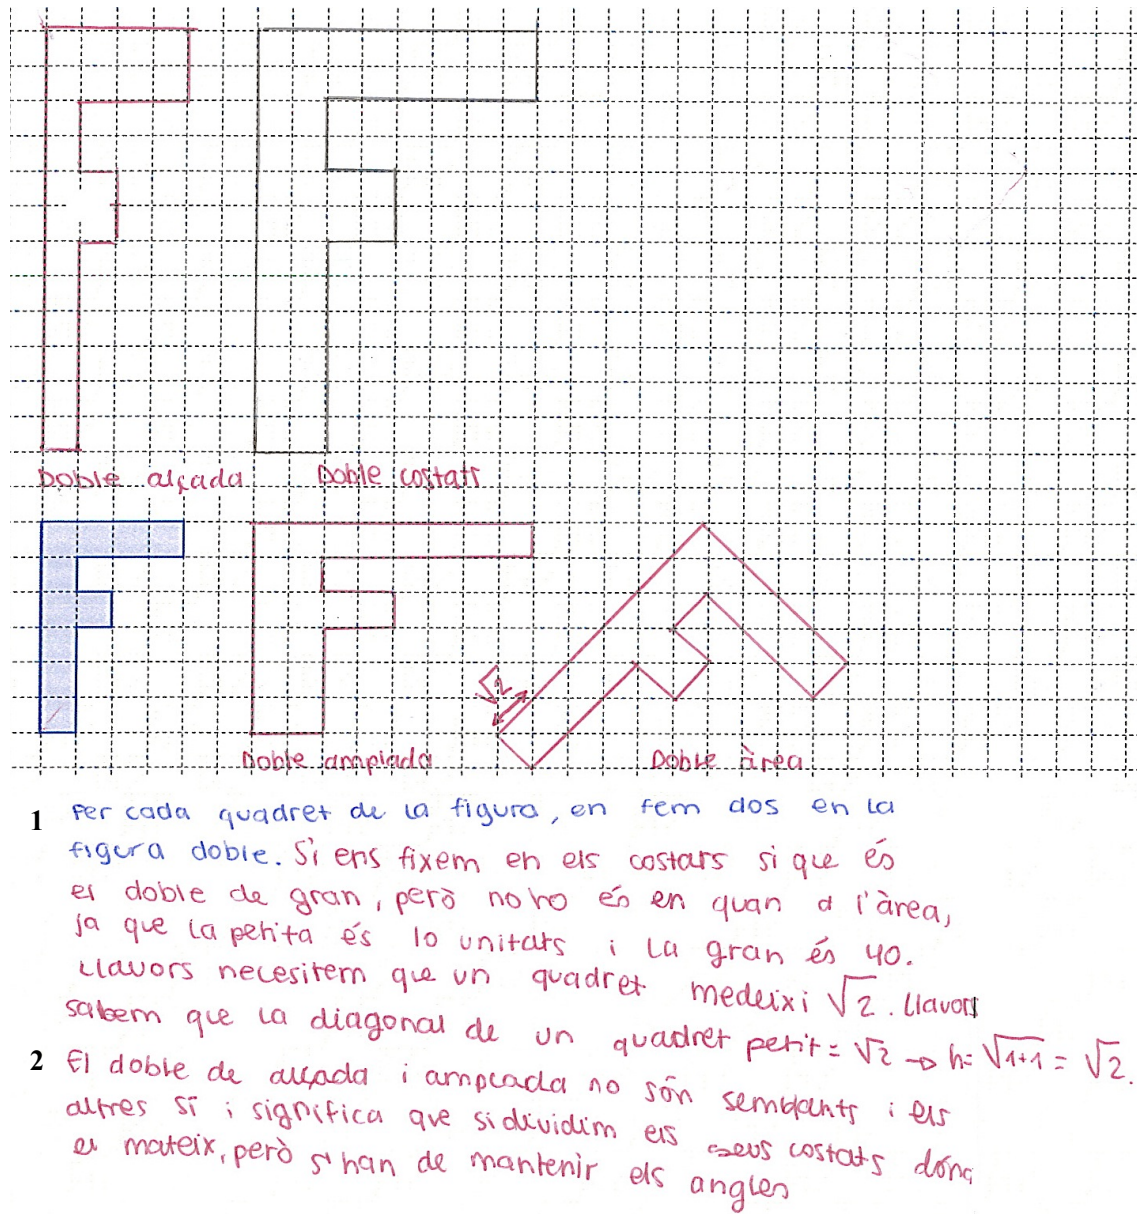 Doble alçada
Doble costats
Doble ampiada
√2
Doble àrea
1 Per cada quadret de la figura, en fem dos en la
figura doble. Si ens fixem en els costats si que és
el doble de gran, però no ho és en quan a l'àrea,
ja que la petita és 10 unitats i la gran és 40.
Llavors necesitem que un quadret medeixi √2. Llavors
sabem que la diagonal de un quadret petit = √2 → h = √1+1 = √2.
2 El doble de alçada i amplada no són semblants i els
altres sí i significa que si dividim els seus costats dóna
el mateix, però s'han de mantenir els angles